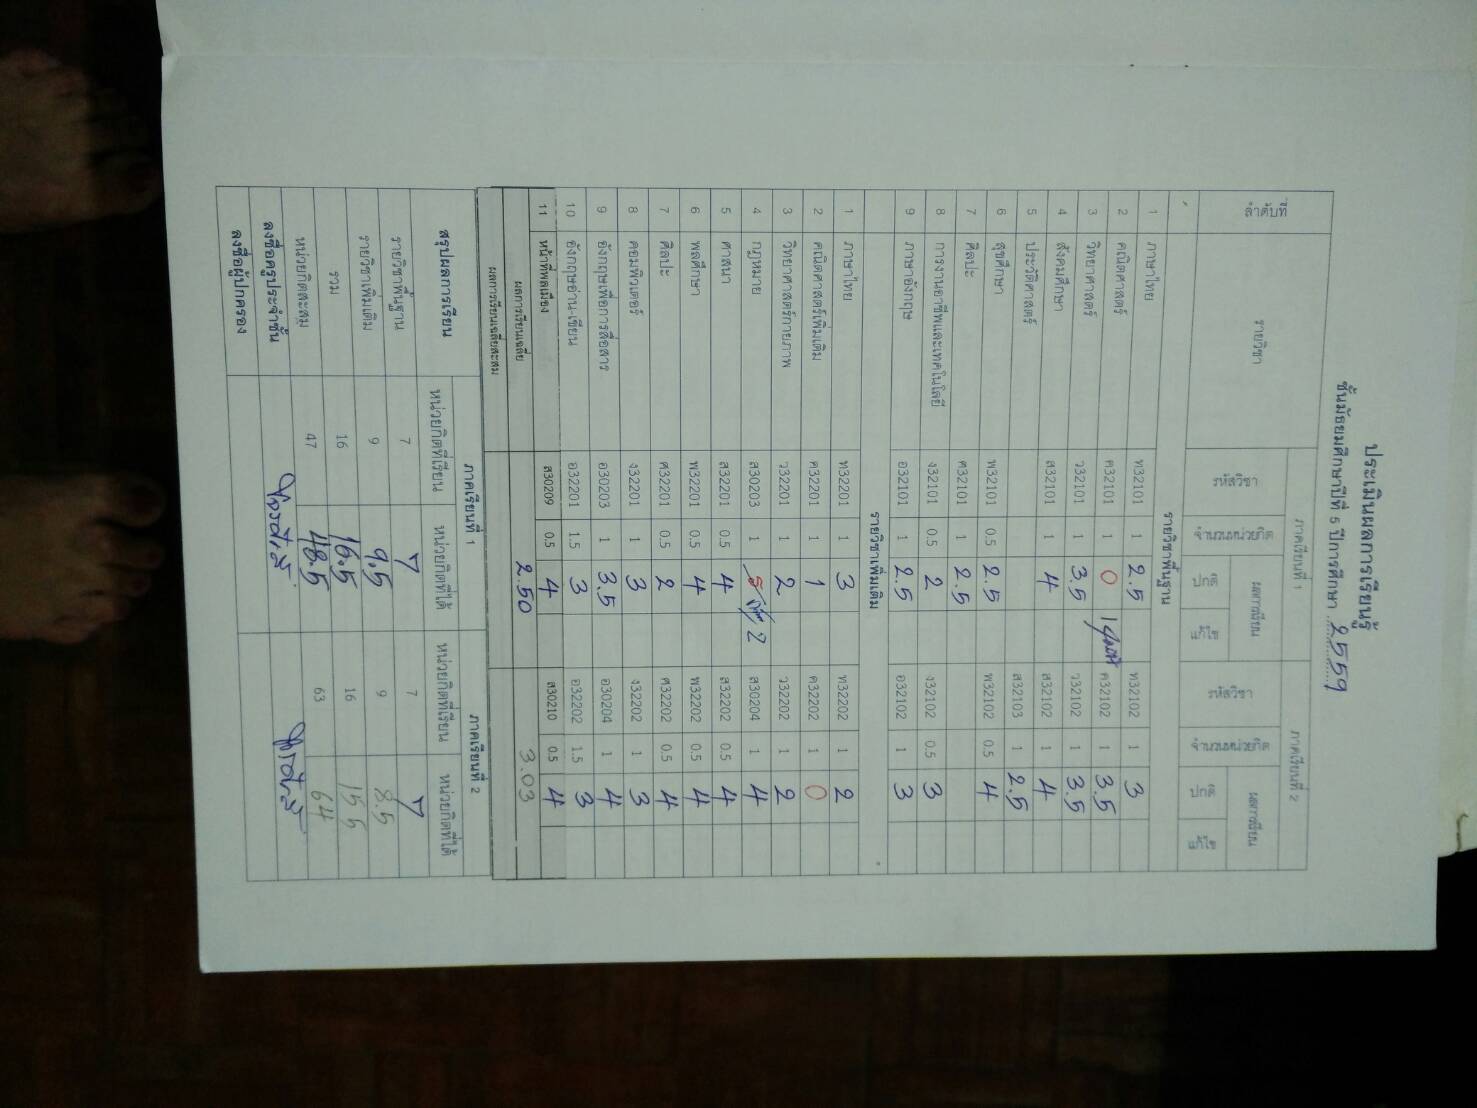 ประเมินผลการเรียนรู้
ชั้นมัธยมศึกษาปีที่ 5 ปีการศึกษา 2559
ลำดับที่ รายวิชา ภาคเรียนที่ 1 ภาคเรียนที่ 2
รหัสวิชา จำนวนหน่วยกิต ผลการเรียน รหัสวิชา จำนวนหน่วยกิต ผลการเรียน
ปกติ แก้ไข ปกติ แก้ไข
รายวิชาพื้นฐาน
1 ภาษาไทย ท32101 1 2.5 ท32102 1 3
2 คณิตศาสตร์ ค32101 1 0 1 ค32102 1 3.5
3 วิทยาศาสตร์ ว32101 1 3.5 ว32102 1 3.5
4 สังคมศึกษา ส32101 1 4 ส32102 1 4
5 ประวัติศาสตร์ ส32103 1 2.5
6 สุขศึกษา พ32101 0.5 2.5 พ32102 0.5 4
7 ศิลปะ ศ32101 1 2.5
8 การงานอาชีพและเทคโนโลยี ง32101 0.5 2 ง32102 0.5 3
9 ภาษาอังกฤษ อ32101 1 2.5 อ32102 1 3
รายวิชาเพิ่มเติม
1 ภาษาไทย ท32201 1 3 ท32202 1 2
2 คณิตศาสตร์เพิ่มเติม ค32201 1 1 ค32202 1 0
3 วิทยาศาสตร์กายภาพ ว32201 1 2 ว32202 1 2
4 กฎหมาย ส30203 1 2 ส30204 1 4
5 ศาสนา ส32201 0.5 4 ส32202 0.5 4
6 พลศึกษา พ32201 0.5 4 พ32202 0.5 4
7 ศิลปะ ศ32201 0.5 2 ศ32202 0.5 4
8 คอมพิวเตอร์ ง32201 1 3 ง32202 1 3
9 อังกฤษเพื่อการสื่อสาร อ30203 1 3.5 อ30204 1 4
10 อังกฤษอ่าน-เขียน อ32201 1.5 3 อ32202 1.5 3
11 หน้าที่พลเมือง ส30209 0.5 4 ส30210 0.5 4
ผลการเรียนเฉลี่ย 2.50 3.03
ผลการเรียนเฉลี่ยสะสม
สรุปผลการเรียน ภาคเรียนที่ 1 ภาคเรียนที่ 2
หน่วยกิตที่เรียน หน่วยกิตที่ได้ หน่วยกิตที่เรียน หน่วยกิตที่ได้
รายวิชาพื้นฐาน 7 7 7 7
รายวิชาเพิ่มเติม 9 9.5 9 8.5
รวม 16 16.5 16 15.5
หน่วยกิตสะสม 47 48.5 63 64
ลงชื่อครูประจำชั้น
ลงชื่อผู้ปกครอง